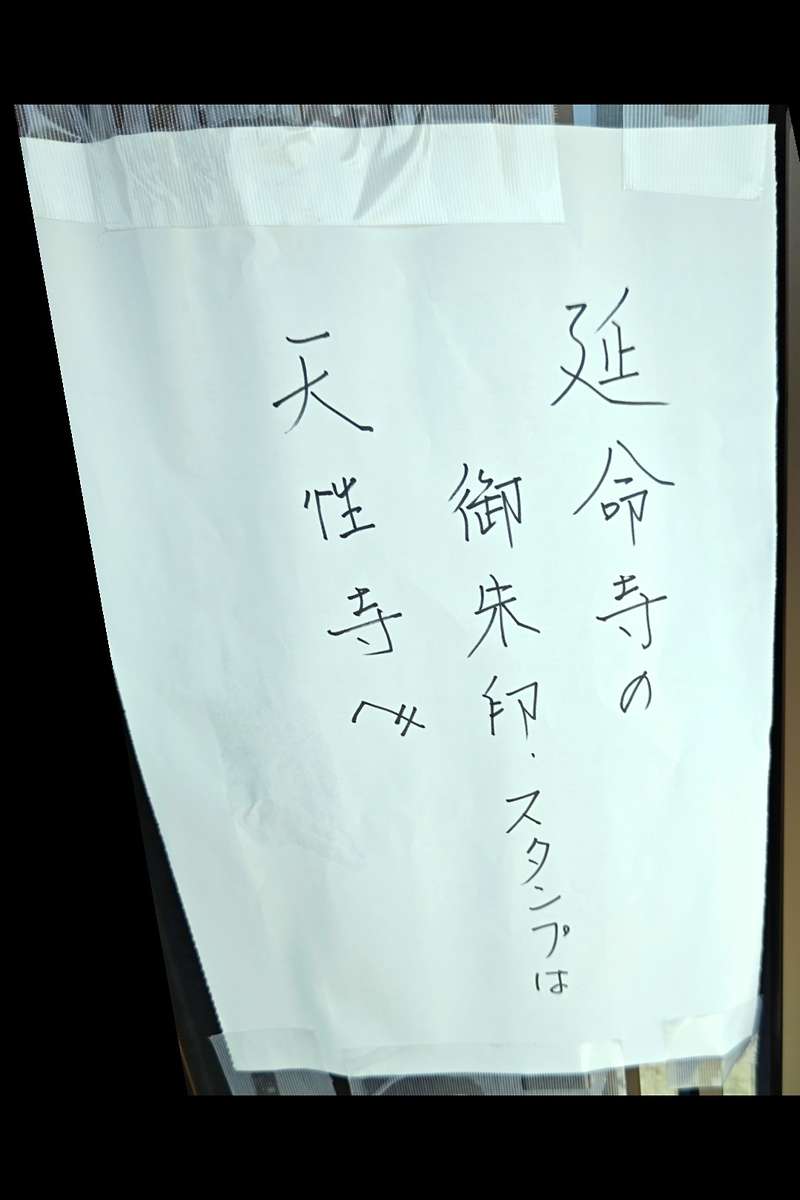 延命寺の
御朱印・スタンプは
天性寺へ〃